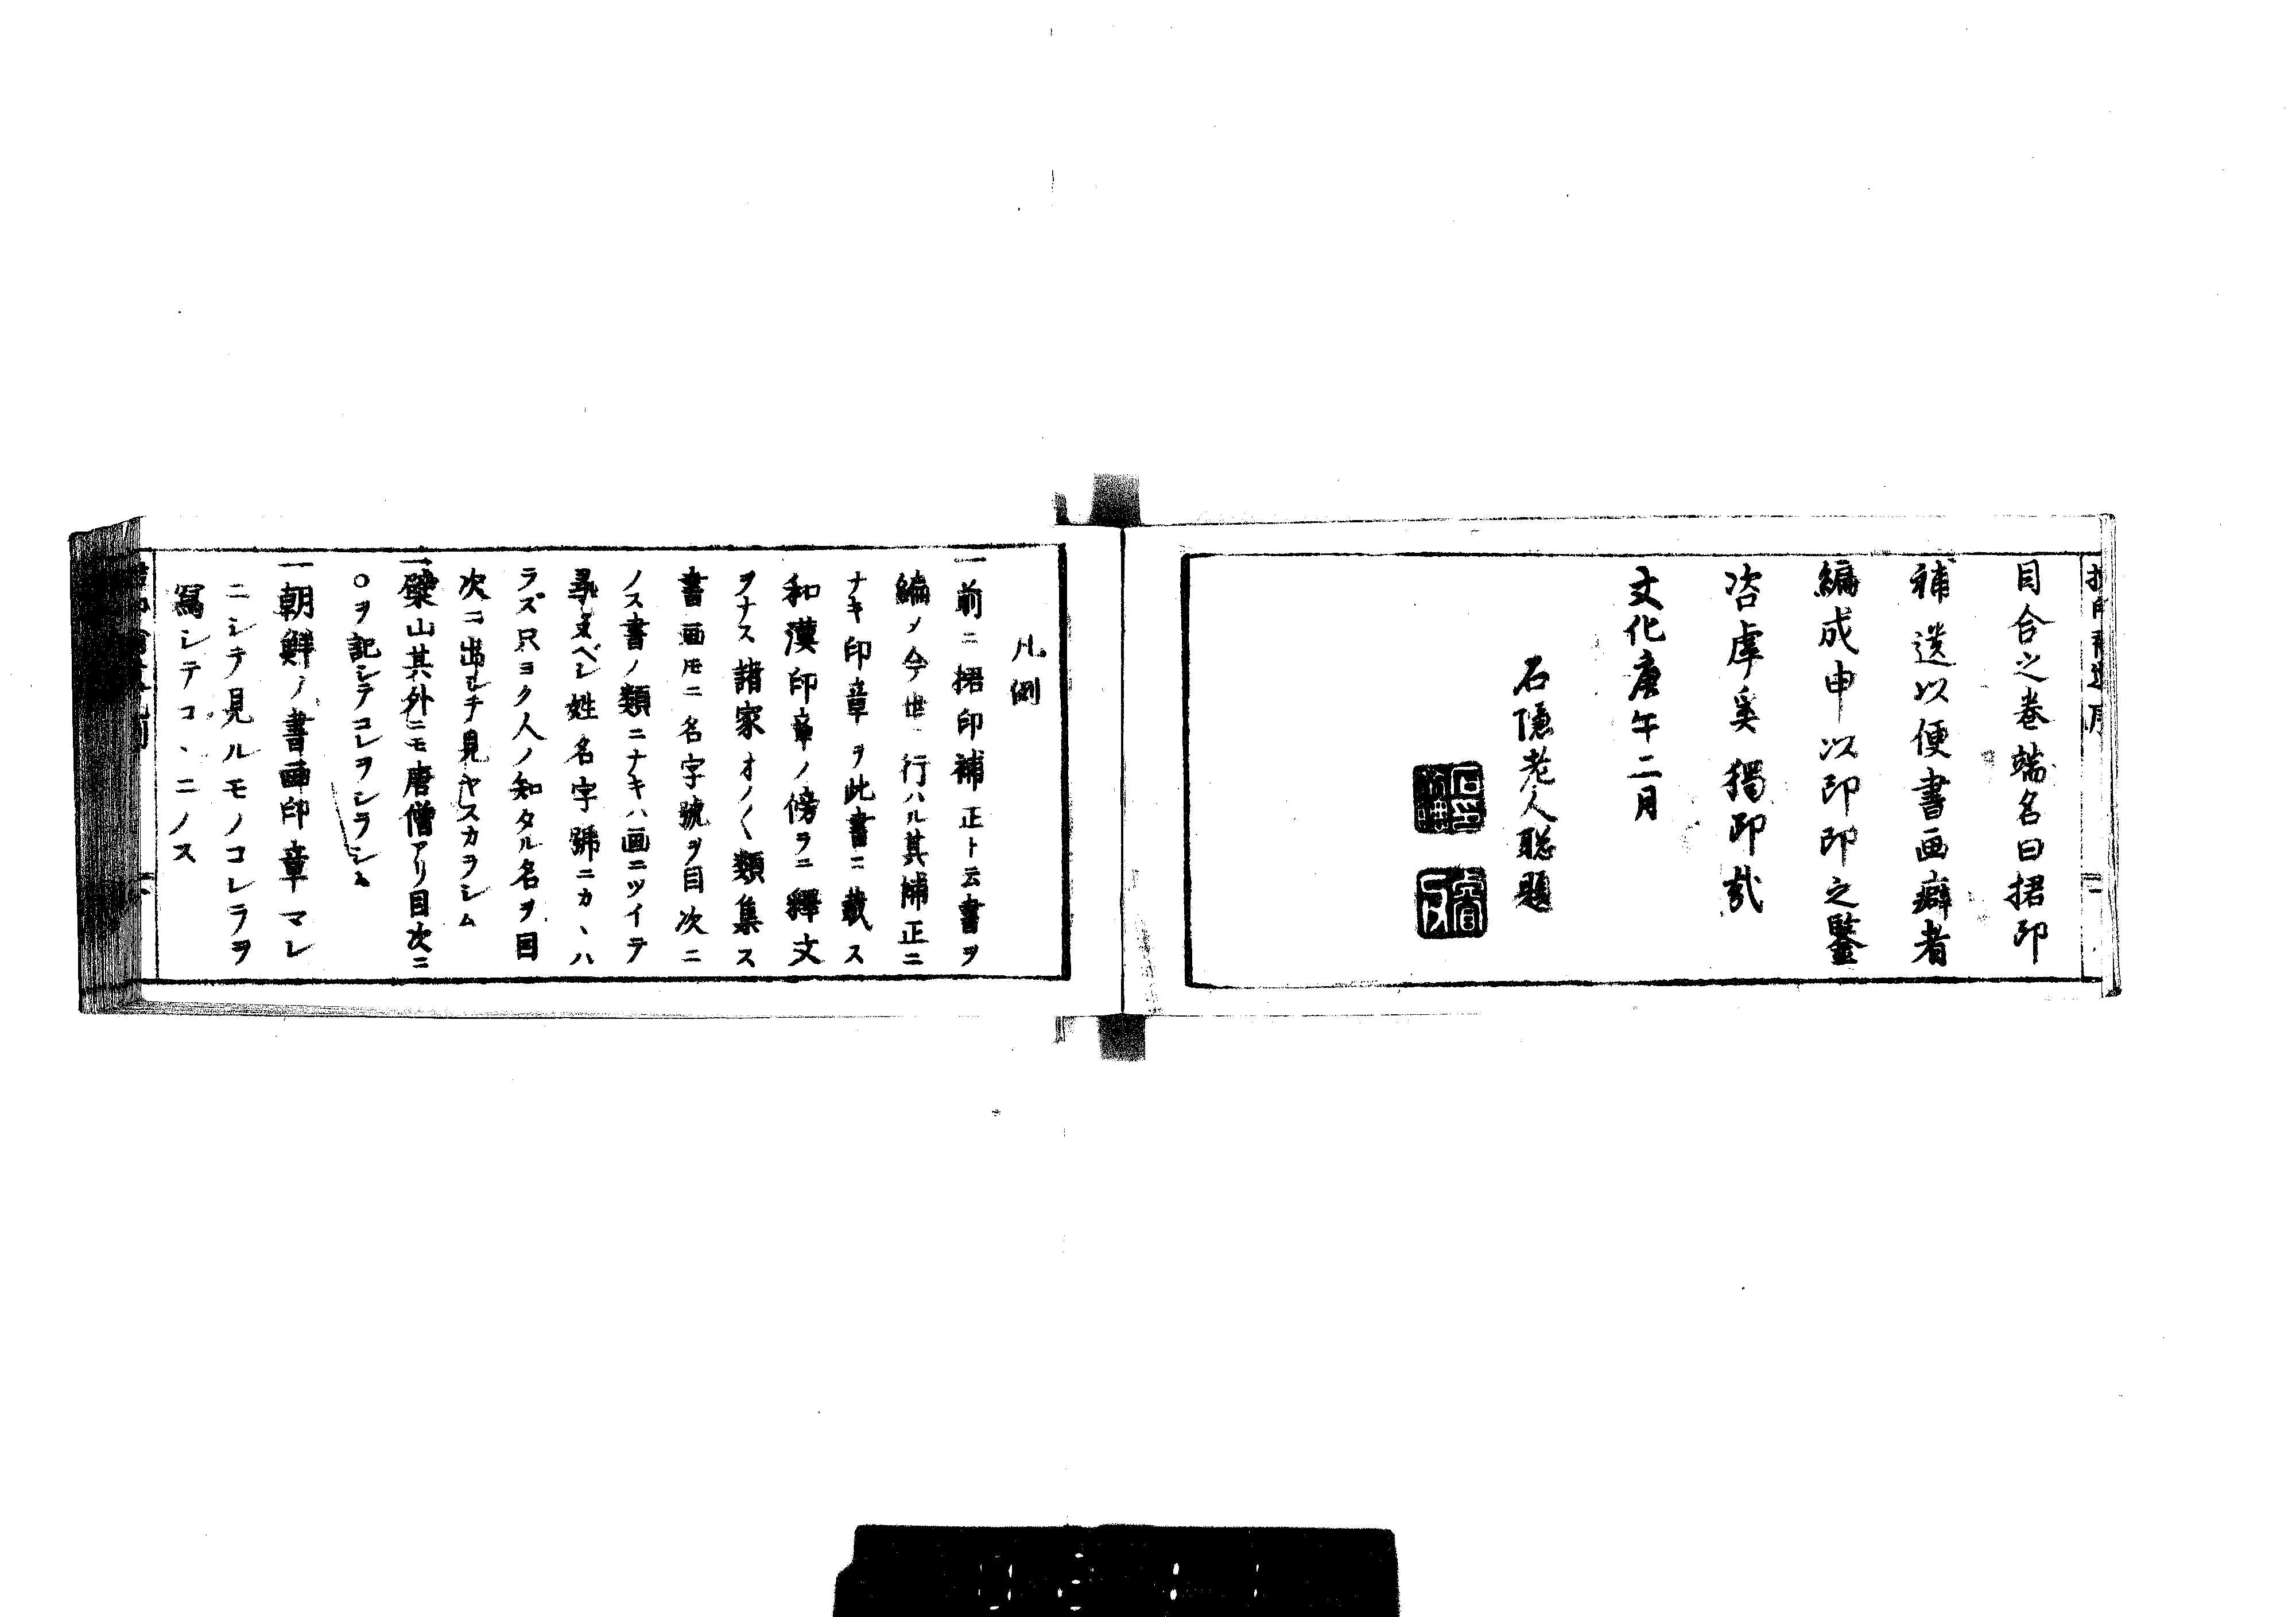 目合之巻端名曰捃印
補遺以便書画癖者
編成申以印印之鑒
咨虖奚獨印哉
文化庚午二月
石隠老人聡題
凡例
一前ニ捃印補正ト云書ヲ
編ノ今世行ハル其補正ニ
ナキ印章ヲ此書ニ載ス
和漢印章ノ傍ラニ釋文
ヲナス諸家オノ〱類集ス
書画モニ名字號ヲ目次ニ
ノス書ノ類ニナキハ画ニツイテ
尋求ベシ姓名字號ニカヽハ
ラズ只ヨク人ノ知タル名ヲ目
次ニ出シテ見ヤスカラシム
一檗山其外ニモ唐僧アリ目次ニ
〇ヲ記シテコレヲシラシム
一朝鮮ノ書画印章マレ
ニシテ見ルモノコレラヲ
冩シテコヽニノス